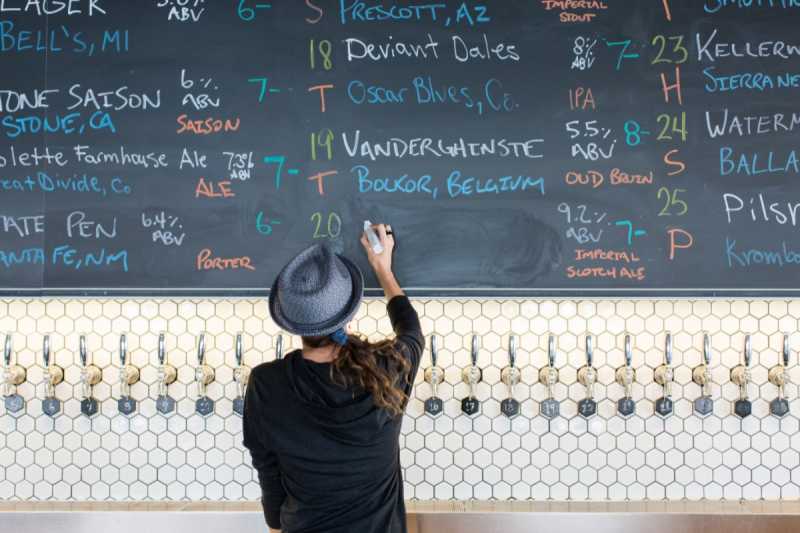 LAGER
BELL'S, MI
6-
STONE SAISON
6% ABV
7-
STONE, CA
SAISON
Farmhouse Ale
7.3% ABV
7-
Great Divide, Co
ALE
STATE PEN
6.4% ABV
6-
SANTA FE, NM
PORTER
S
PRESCOTT, AZ
IMPERIAL STOUT
18
Deviant Dales
8% ABV
7-
T
Oscar Blues, Co.
IPA
19
VANDERGHINSTE
5.5% ABV
8-
T
BOCKOR, BELGIUM
OUD BRUIN
20
9.2% ABV
7-
IMPERIAL
SCOTCH ALE
T
23
H
SIERRA NE
24
WATERM
S
BALLA
25
PILS
P
Kromb